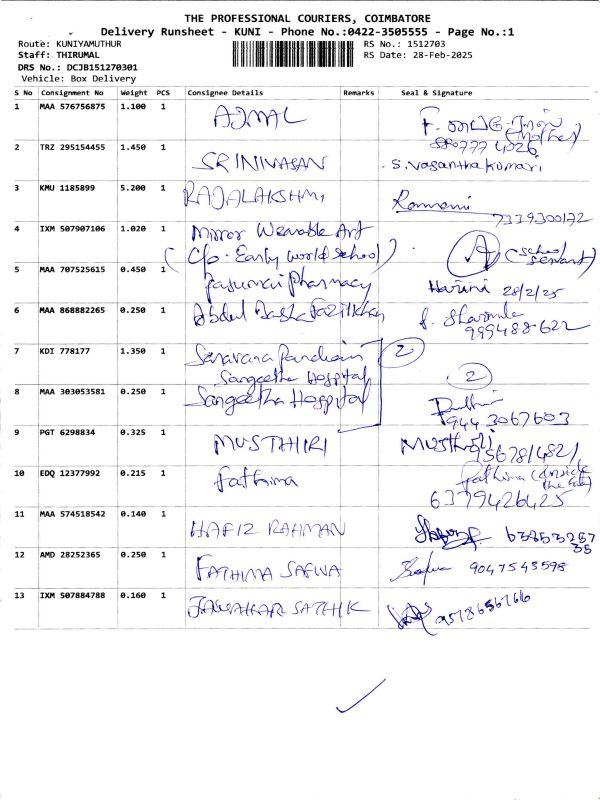 THE PROFESSIONAL COURIERS, COIMBATORE
Delivery Runsheet - KUNI - Phone No.:0422-3505555 - Page No.:1
Route: KUNIYAMUTHUR RS No.: 1512703
Staff: THIRUMAL RS Date: 28-Feb-2025
DRS No.: DCJB151270301
Vehicle: Box Delivery
S No Consignment No Weight PCS Consignee Details Remarks Seal & Signature
1 MAA 576756875 1.100 1 AJMAL
(Mother)
2 TRZ 295154455 1.450 1 SRINIVASAN S.Vasanthakumari
3 KMU 1185899 5.200 1 RAJALAKSHMI
7339300172
4 IXM 507907106 1.020 1 Mirror Wearable Art
(C/o. Early world School) (School Servant)
5 MAA 707525615 0.450 1 Pasumai Pharmacy Harini 28/2/25
6 MAA 868882265 0.250 1 Abdul Basha Fazilkhan
7 KDI 778177 1.350 1 Saravana Pandian 2
Sangeetha Hospital
8 MAA 303053581 0.250 1 Sangeetha Hospital 2
944 3067603
9 PGT 6298834 0.325 1 MUSTHIRI
10 EDQ 12377992 0.215 1 Fathima Fathima (Inside the Gate)
6379426425
11 MAA 574518542 0.140 1 HAFIZ RAHMAN
12 AMD 28252365 0.250 1 FATHIMA SAFWA Safwa 9047543598
13 IXM 507884788 0.160 1 JAWAHAR SATHIK